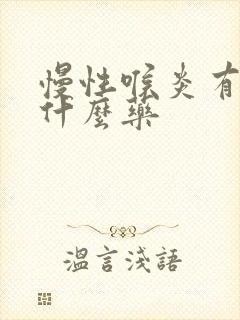 慢性喉炎有
什麼藥
溫言淺語